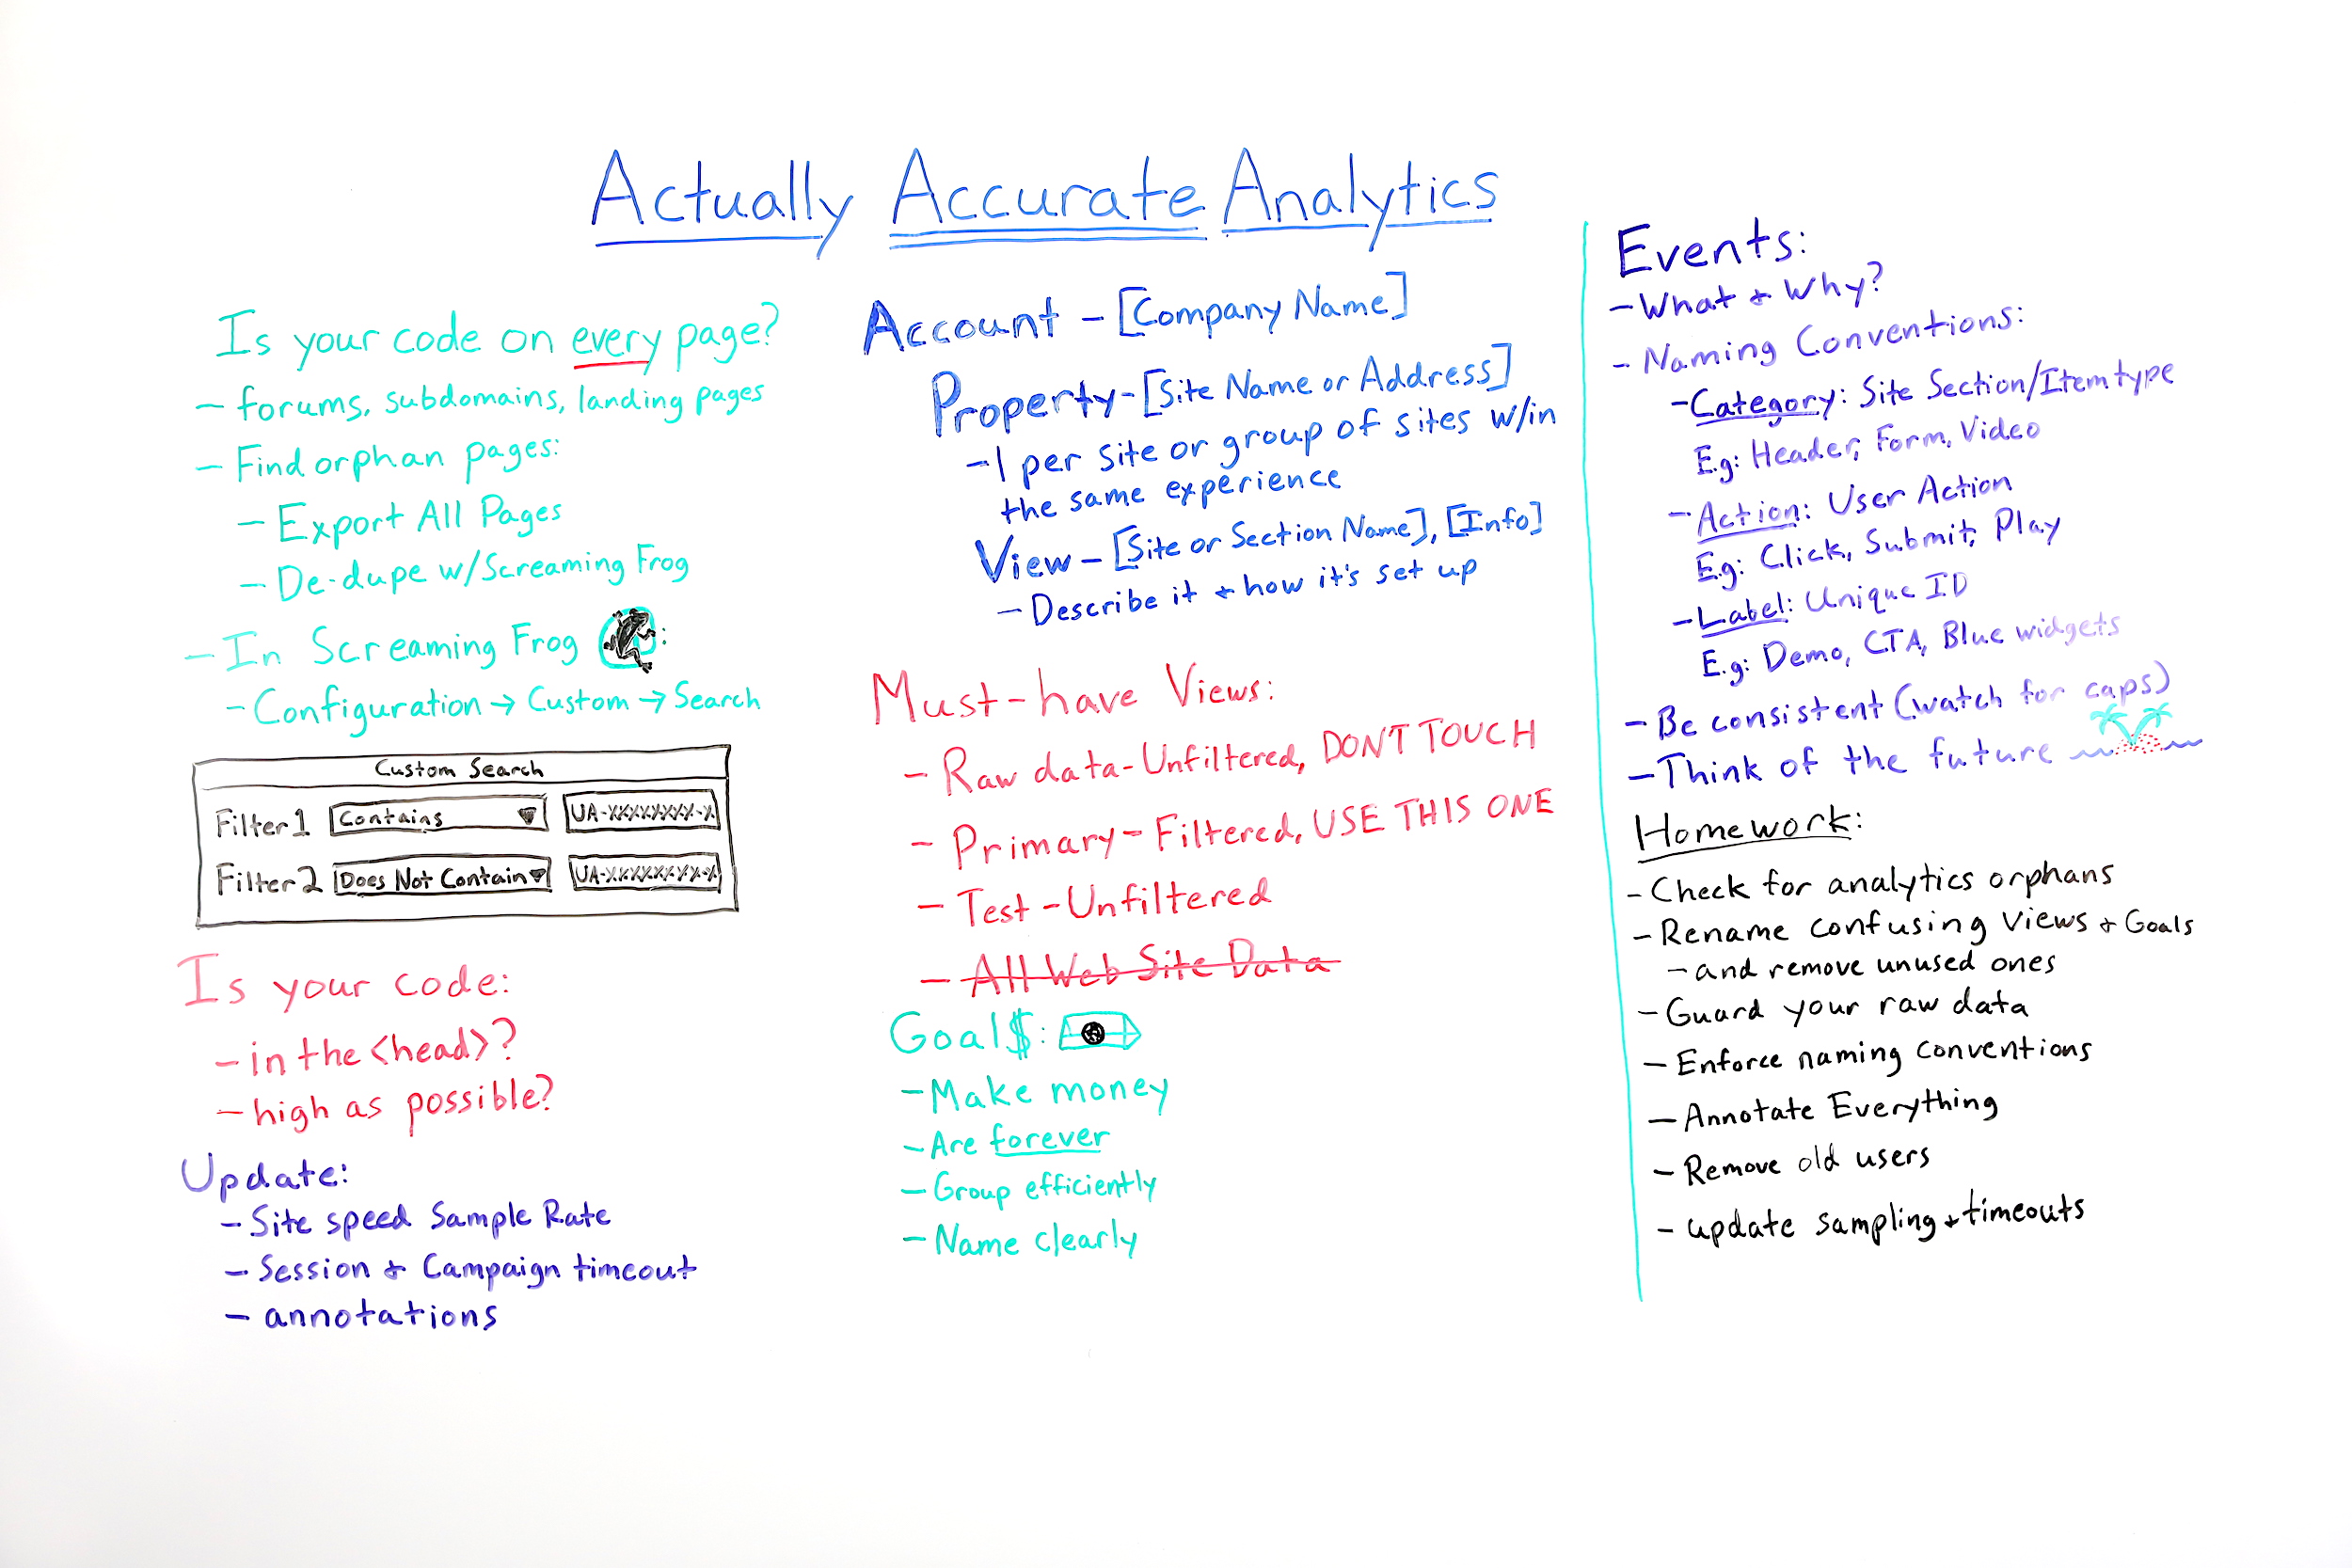 Actually Accurate Analytics
Is your code on every page?
- forums, subdomains, landing pages
- Find orphan pages:
- Export All Pages
- De-dupe w/Screaming Frog
- In Screaming Frog :
- Configuration → Custom → Search
Custom Search
Filter 1 Contains UA-XXXXXXXX-X
Filter 2 Does Not Contain UA-XXXXXXXX-X
Is your code:
- in the <head>?
- high as possible?
Update:
- Site speed Sample Rate
- Session + Campaign timeout
- annotations
Account - [Company Name]
Property - [Site Name or Address]
- 1 per site or group of sites w/in
the same experience
View - [Site or Section Name], [Info]
- Describe it + how it's set up
Must-have Views:
- Raw data - Unfiltered, DON'T TOUCH
- Primary - Filtered, USE THIS ONE
- Test - Unfiltered
- All Web Site Data
Goal$:
- Make money
- Are forever
- Group efficiently
- Name clearly
Events:
- What + Why?
- Naming Conventions:
- Category: Site Section/Item type
E.g: Header, Form, Video
- Action: User Action
E.g: Click, Submit, Play
- Label: Unique ID
E.g: Demo, CTA, Blue widgets
- Be consistent (watch for caps)
- Think of the future
Homework:
- Check for analytics orphans
- Rename confusing views + Goals
- and remove unused ones
- Guard your raw data
- Enforce naming conventions
- Annotate Everything
- Remove old users
- update sampling + timeouts